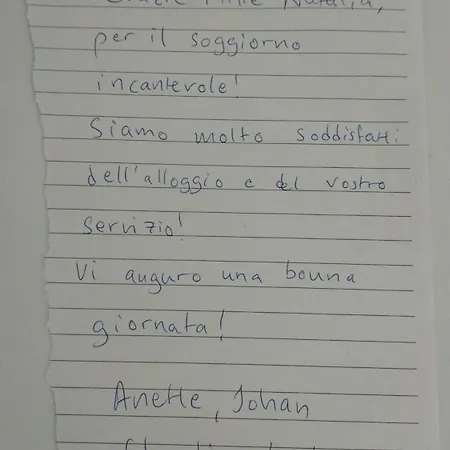 Grazie mille Natalia,
per il soggiorno
incantevole!
Siamo molto soddisfatti
dell'alloggio e del vostro
servizio!
Vi auguro una bouna
giornata!
Anette, Johan